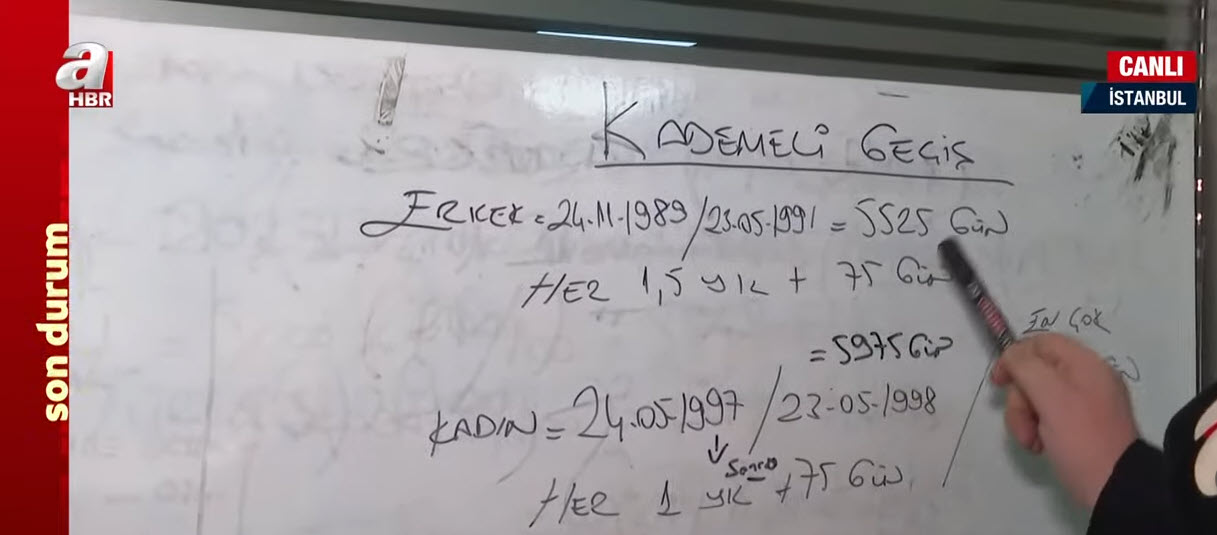 a
HBR
son durum
CANLI
İSTANBUL
KADEMELİ GEÇİŞ
ERKEK = 24.11.1989 / 23.05.1991 = 5525 GÜN
HER 1,5 YIL + 75 GÜN
= 5975 GÜN
EN ÇOK
KADIN = 24.05.1997 / 23.05.1998
↓ Sonra
HER 1 YIL + 75 GÜN